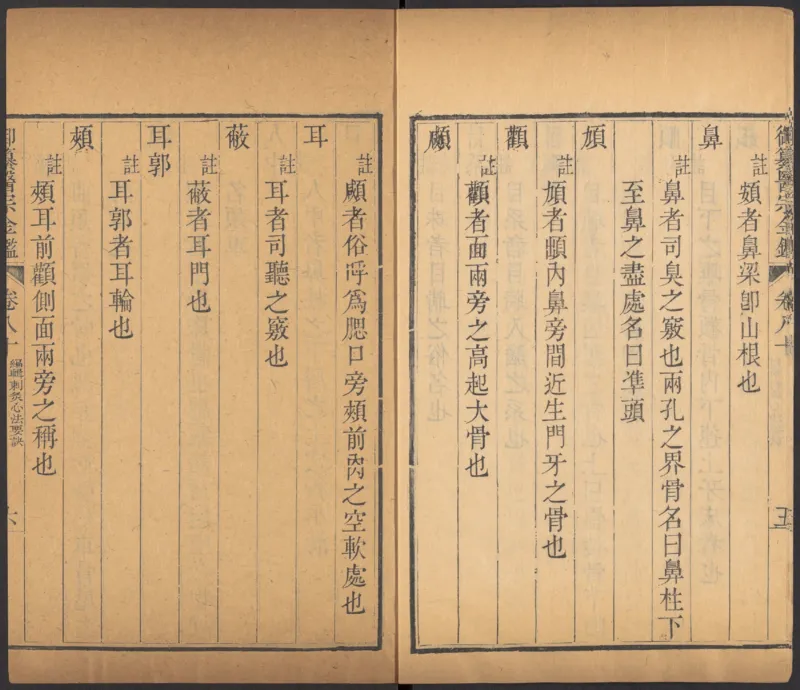 御纂醫宗金鑑 卷八十 五
註 頞者鼻梁卽山根也
鼻
註 鼻者司臭之竅也兩孔之界骨名曰鼻柱下
至鼻之盡處名曰凖頭
頄
註 頄者顴內鼻旁間近生門牙之骨也
顴
註 顴者面兩旁之高起大骨也
顑
註 顑者俗呼爲腮口旁頰前肉之空軟處也
耳
註 耳者司聽之竅也
蔽
註 蔽者耳門也
耳郭
註 耳郭者耳輪也
頰
註 頰耳前顴側面兩旁之稱也
御纂醫宗金鑑 卷八十 編輯刺灸心法要訣 六